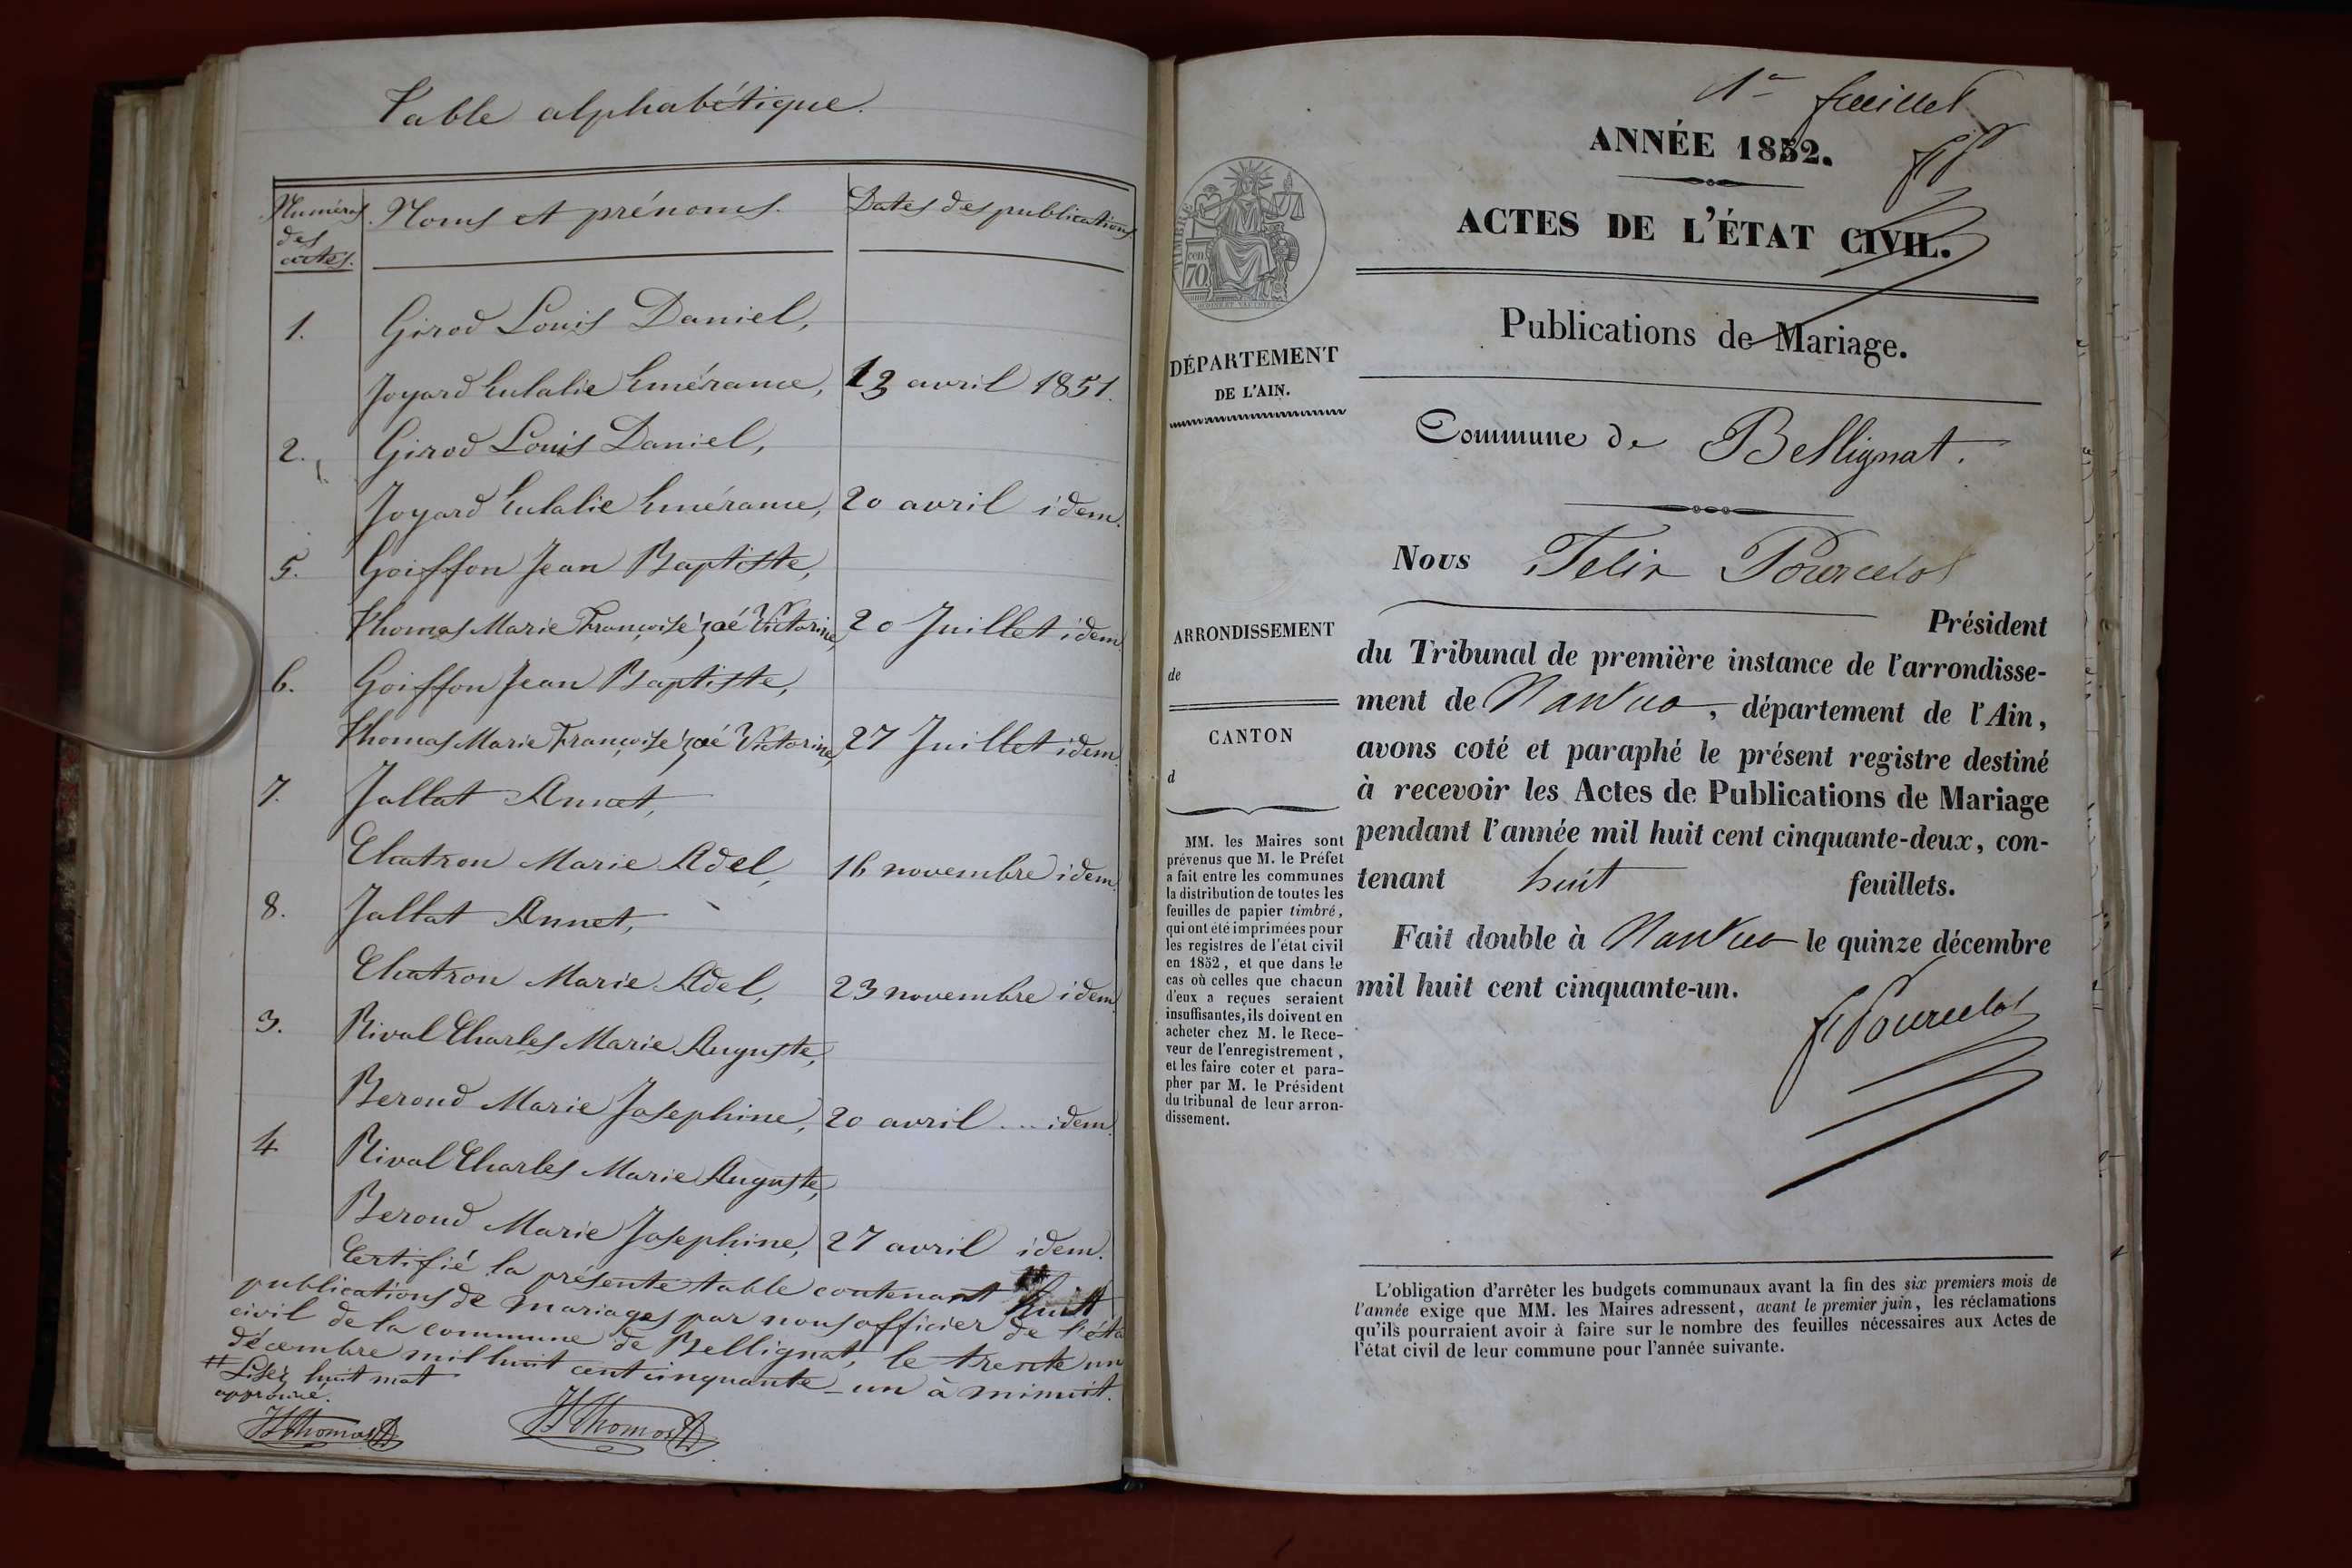 Table alphabétique.
Numéros des actes. Noms et prénoms. Dates des publications.
1. Girod Louis Daniel,
Joyard Eulalie Emérance, 13 avril 1851.
2. Girod Louis Daniel,
Joyard Eulalie Emérance, 20 avril idem.
5. Goiffon Jean Baptiste,
Thomas Marie Françoise Zoé Victorine, 20 Juillet idem
6. Goiffon Jean Baptiste,
Thomas Marie Françoise Zoé Victorine, 27 Juillet idem.
7. Jallat Annet,
Chatron Marie Adel, 16 novembre idem.
8. Jallat Annet,
Chatron Marie Adel, 23 novembre idem
3. Rival Charles Marie Auguste,
Beroud Marie Josephine, 20 avril ... idem.
4 Rival Charles Marie Auguste,
Beroud Marie Josephine, 27 avril idem.
Certifié la présente table contenant huit
publications de mariages par nous officier de l'éta
civil de la commune de Bellignat, le trente un
décembre mil huit cent cinquante-un à minuit.
# Lisez huit mot
approuvé.
JThomas JThomas
1er feuillet
ANNÉE 1852.
fP
ACTES DE L'ÉTAT CIVIL.
Publications de Mariage.
TIMBRE
cen.
70
DÉPARTEMENT
DE L'AIN.
Commune de Bellignat.
Nous Felix Pourcelot
Président
du Tribunal de première instance de l'arrondisse-
ment de Nantua, département de l'Ain,
avons coté et paraphé le présent registre destiné
à recevoir les Actes de Publications de Mariage
pendant l'année mil huit cent cinquante-deux, con-
tenant huit feuillets.
Fait double à Nantua le quinze décembre
mil huit cent cinquante-un.
fPourcelot
ARRONDISSEMENT
de
CANTON
d
MM. les Maires sont
prévenus que M. le Préfet
a fait entre les communes
la distribution de toutes les
feuilles de papier timbré,
qui ont été imprimées pour
les registres de l'état civil
en 1852, et que dans le
cas où celles que chacun
d'eux a reçues seraient
insuffisantes, ils doivent en
acheter chez M. le Rece-
veur de l'enregistrement,
et les faire coter et para-
pher par M. le Président
du tribunal de leur arron-
dissement.
L'obligation d'arrêter les budgets communaux avant la fin des six premiers mois de
l'année exige que MM. les Maires adressent, avant le premier juin, les réclamations
qu'ils pourraient avoir à faire sur le nombre des feuilles nécessaires aux Actes de
l'état civil de leur commune pour l'année suivante.